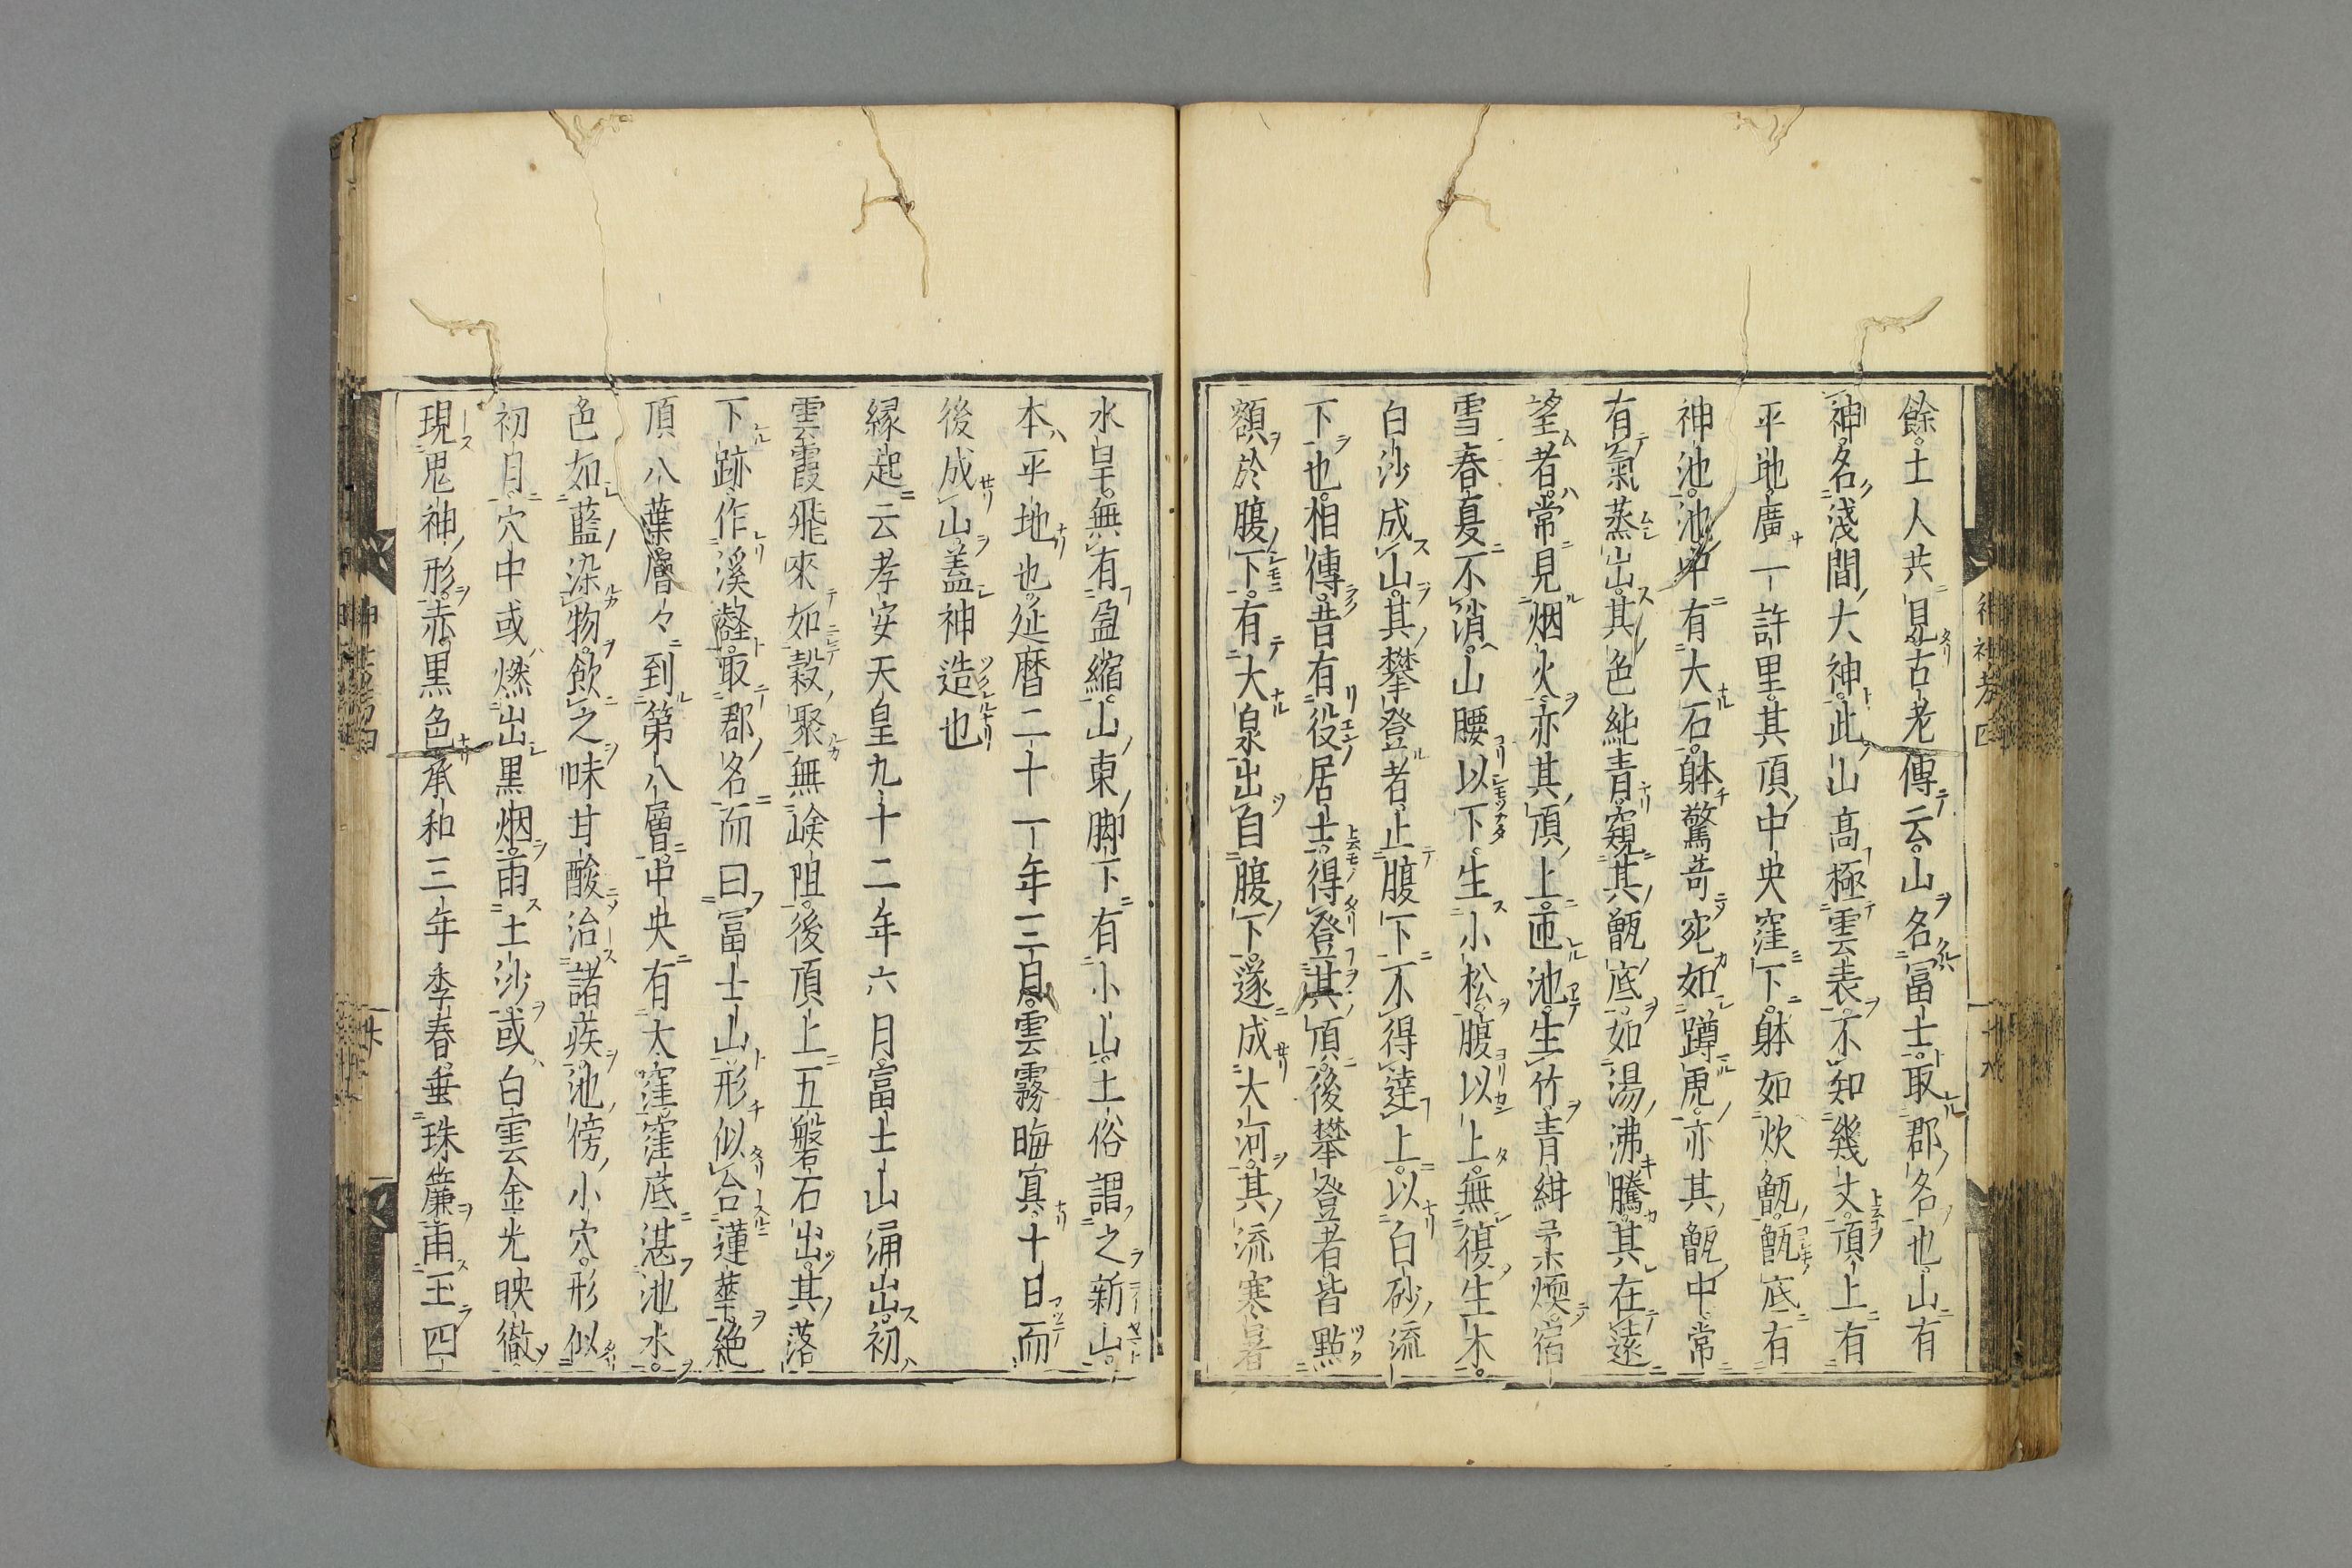 餘土人共見古老傳云山名冨士取郡名也山有
神名淺間大神此山高極雲表不知幾丈頂上有
平地廣一許里其頂中央窪下躰如炊甑甑底有
神池池中有大石躰驚奇宛如蹲虎亦其甑中常
有氣蒸出其色純青窺其甑底如湯沸騰其在遠
望者常見烟火亦其頂上匝池生竹青紺柔煗宿
雪春夏不消山腰以下生小松腹以上無復生木
白沙成山其攀登者止腹下不得達上以白砂流
下也相傳昔有役居士得登其頂後攀登者皆點
額於腹下有大泉出自腹下遂成大河其流寒暑
水旱無有盈縮山東脚下有小山土俗謂之新山
本平地也延暦二十一年三月雲霧晦冥十日而
後成山蓋神造也
縁起云孝安天皇九十二年六月富士山涌出初
雲霞飛來如穀聚無峻阻後頂上五磐石出其落
下跡作溪壑取郡名而曰冨士山形似合蓮華絶
頂八葉層々到第八層中央有大窪窪底湛池水
色如藍染物飲之味甘酸治諸疾池傍小穴形似
初月穴中或燃出黒烟雨土沙或白雲金光映徹
現鬼神形赤黒色承和三年季春垂珠簾雨玉四
神社考四